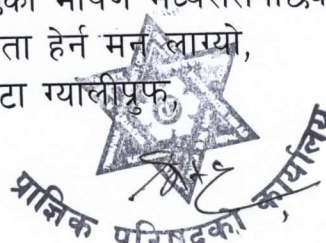 ता हेर्न मन लाग्यो,
टा ग्यालीप्रुफ,
प्राज्ञिक परिषद्को कार्यालय